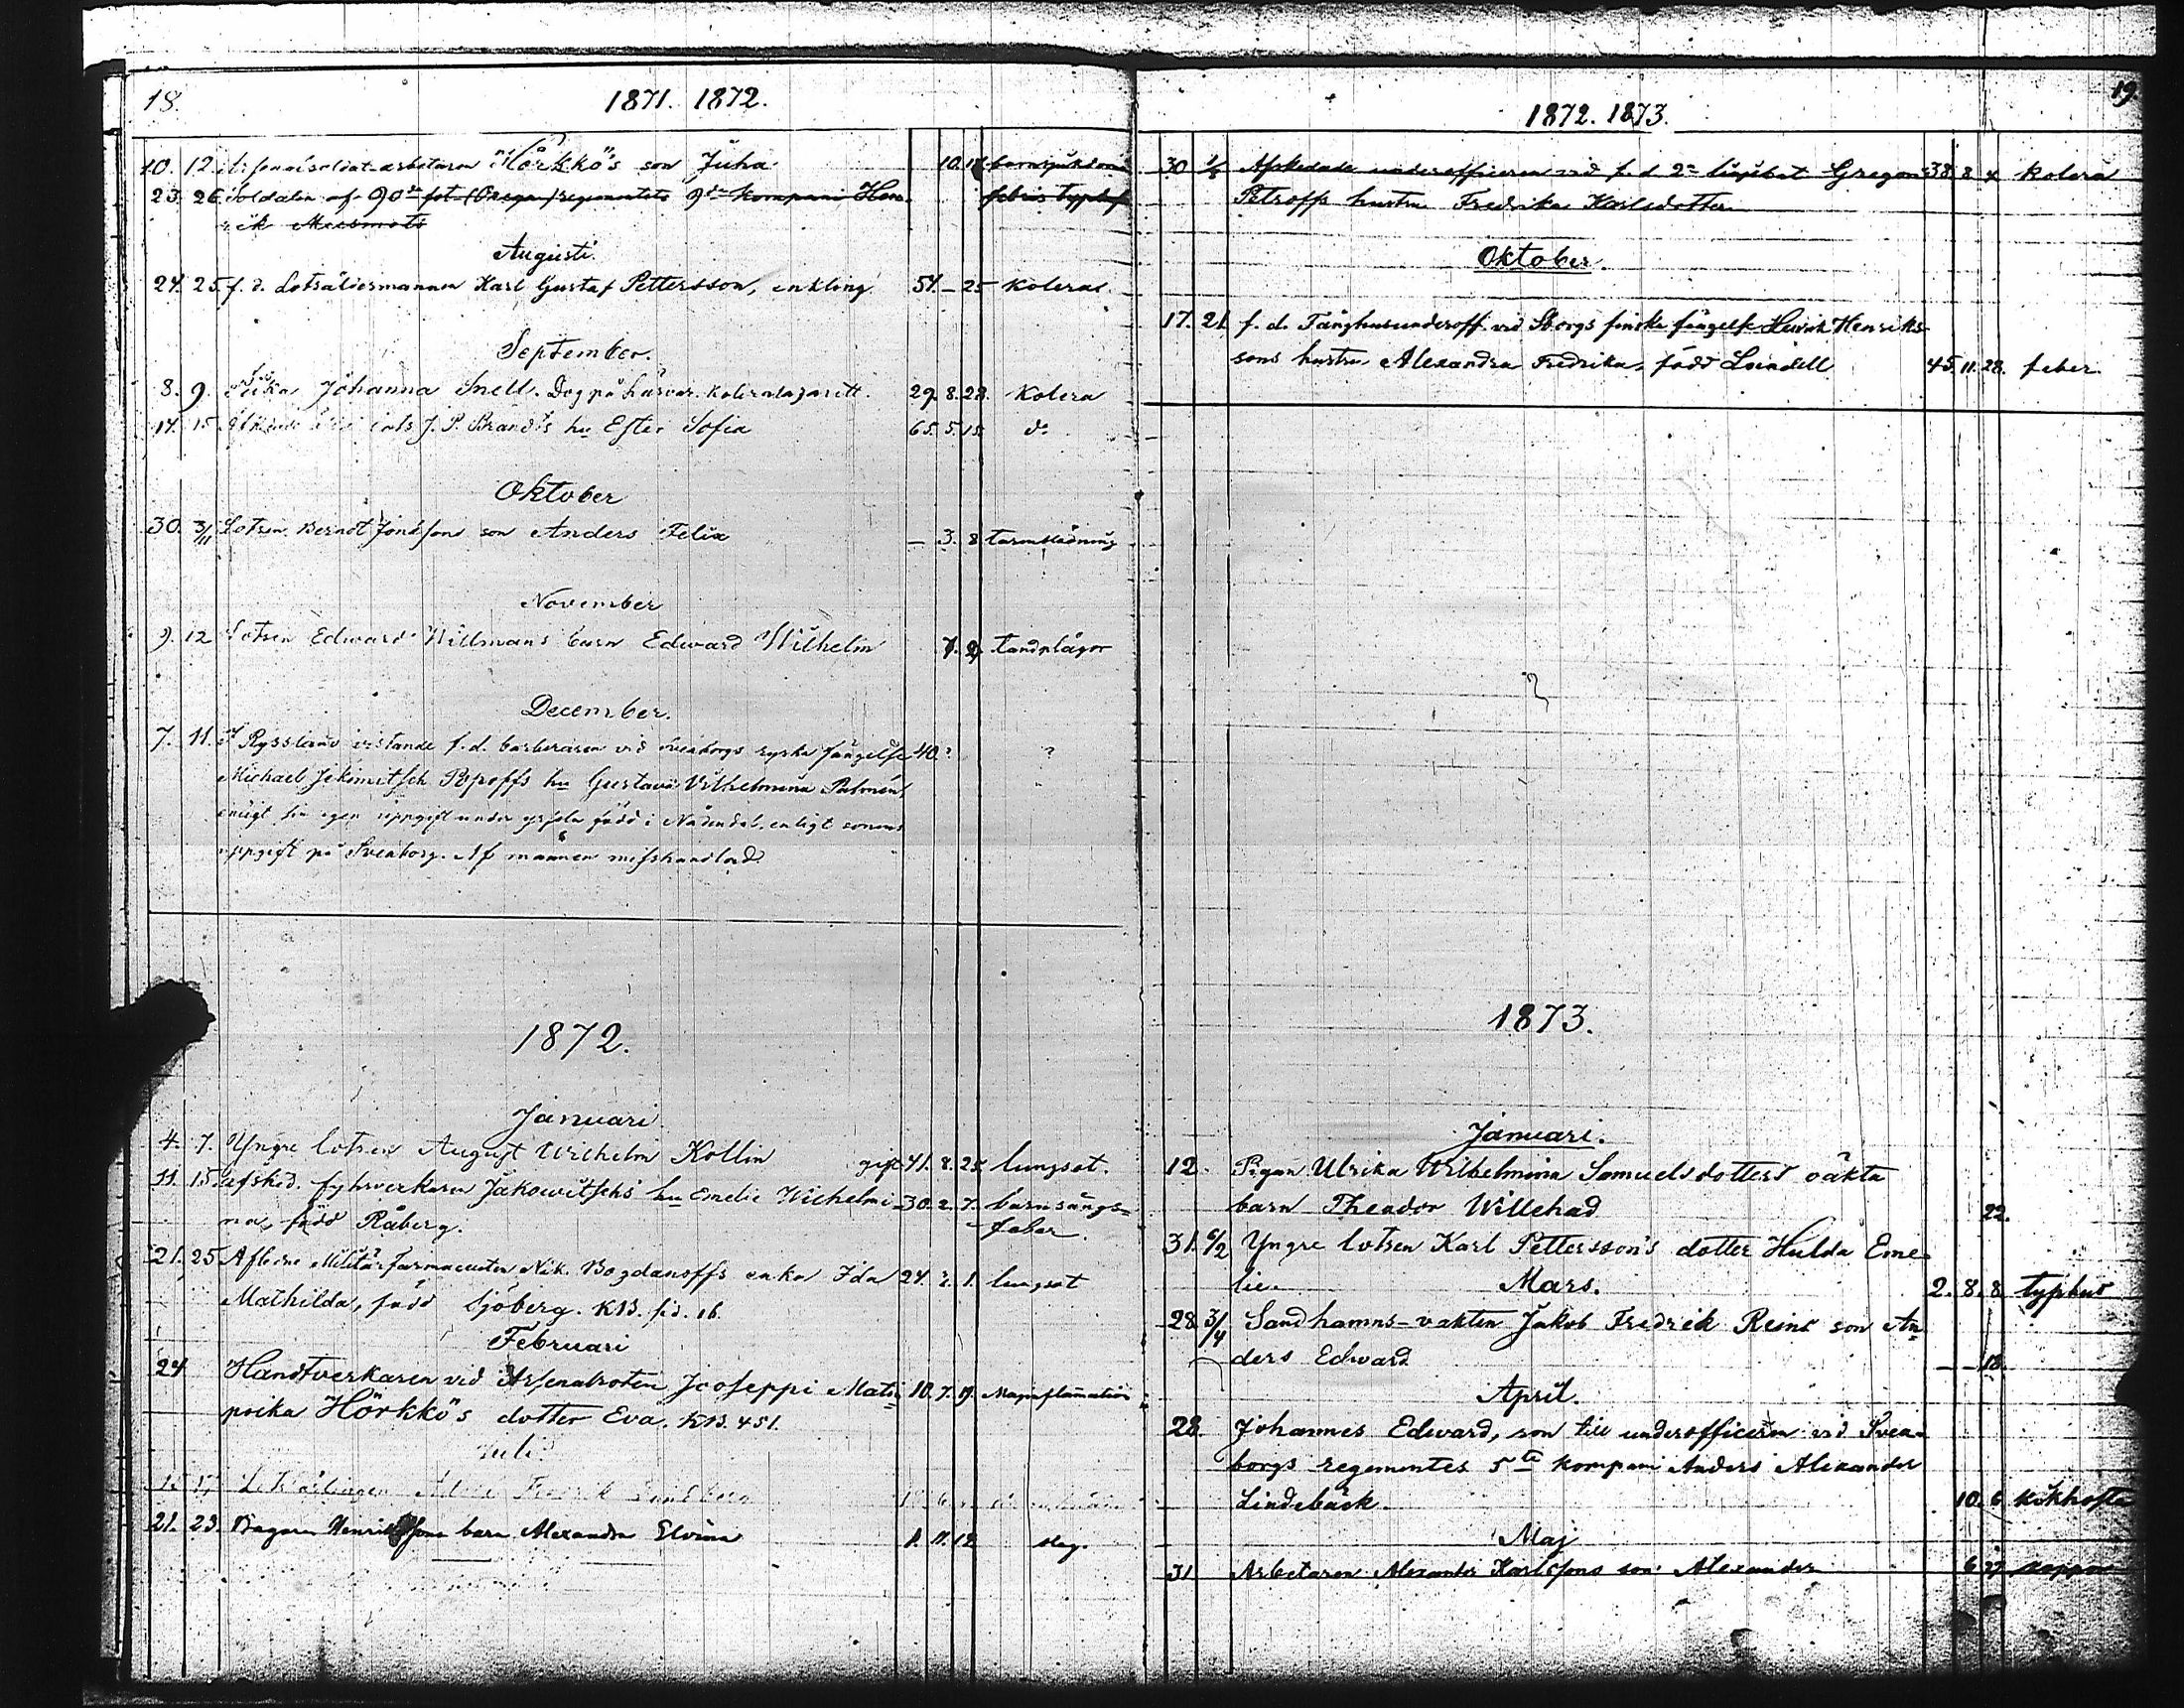 18.
1871. 1872.
10. 12. Arsenalsoldat-arbetaren Hörkkö's son Juha 10. barnsjukdom
23. 26. Soldaten af 90de fot-(Onega) regementets 9de kompani Hen- febris typhos
rik
Augusti.
24. 25. f. d. Lotsåldermannen Karl Gustaf Pettersson, enkling 54. – 25 Kolera
September.
8. 9. Johanna Snell. Dog på Kolera lazarett. 29. 8. 28. Kolera
14. 15. J. P. Strandts hu Ester Sofia 65. 5. 15. do
Oktober
30. 3/11 Lotsen Berndt Jonssons son Anders Felix – 3. 8 tarmblödning
November
9. 12 Lotsen Edward Willmans barn Edward Wilhelm 7. 9 tandplågor
December.
7. 11. I Ryssland vistande f. d. barberaren vid Sveaborgs ryska fängelse 40. ? ?
Michael Jekimitsch Popoffs hu Gustava Vilhelmina Palmén,
enligt sin egen uppgift under yrseln född i Nådendal, enligt sonens
uppgift på Sveaborg. Af mannen misshandlad.
1872.
Januari.
4. 7. Yngre lotsen August Wilhelm Kollin gift 41. 8. 25 lungsot.
11. 15. Afsked. fyhrverkaren Jakowitschs hu Emelie Wilhelmi- 30. 2. 7. barnsängs-
na, född Råberg. feber.
21. 25 Aflidne Militärfarmaceuten Nik. Bogdanoffs enka Ida 24. 2. 1. lungsot
Mathilda, född Sjöberg. KB. sid. 16.
Februari
24 Handtverkaren vid Arsenalroten Jooseppi Matin 10. 7. 19. Maginflamation
poika Hörkkö's dotter Eva. KB. 451.
Juli.
15. 17 Lotslärlingen Fredrik Sundberg
21. 23. Bagaren Henrikssons barn Alexandra Elvina 1. 11. 12 slag.
19.
1872. 1873.
30 Afskedade underofficeren vid f. d. 2a linjebat Gregori 38. 8 4 Kolera
Petroffs hustru Fredrika Karlsdotter
Oktober.
17. 21. f. d. Tånghusunderoff. vid Sborgs finska fängelse Henrik Henriks-
sons hustru Alexandra Fredrika, född Lindell 45. 11. 28. feber.
1873.
Januari.
12. Pigan Ulrika Wilhelmina Samuelsdotters oäkta
barn Theodor Willehad 22.
31. 6/2 Yngre lotsen Karl Pettersson's dotter Hulda Eme-
lie. 2. 8. 8. typhus
Mars.
28. 3/4 Sandhamns-vakten Jakob Fredrik Reins son An-
ders Edward – – 18.
April.
28. Johannes Edward, son till underofficeren vid Svea-
borgs regementes 5te kompani Anders Alexander
Lindebäck. 10. 6 Kikhosta
Maj
31 Arbetaren Alexander Karlssons son Alexander 6 27 koppor